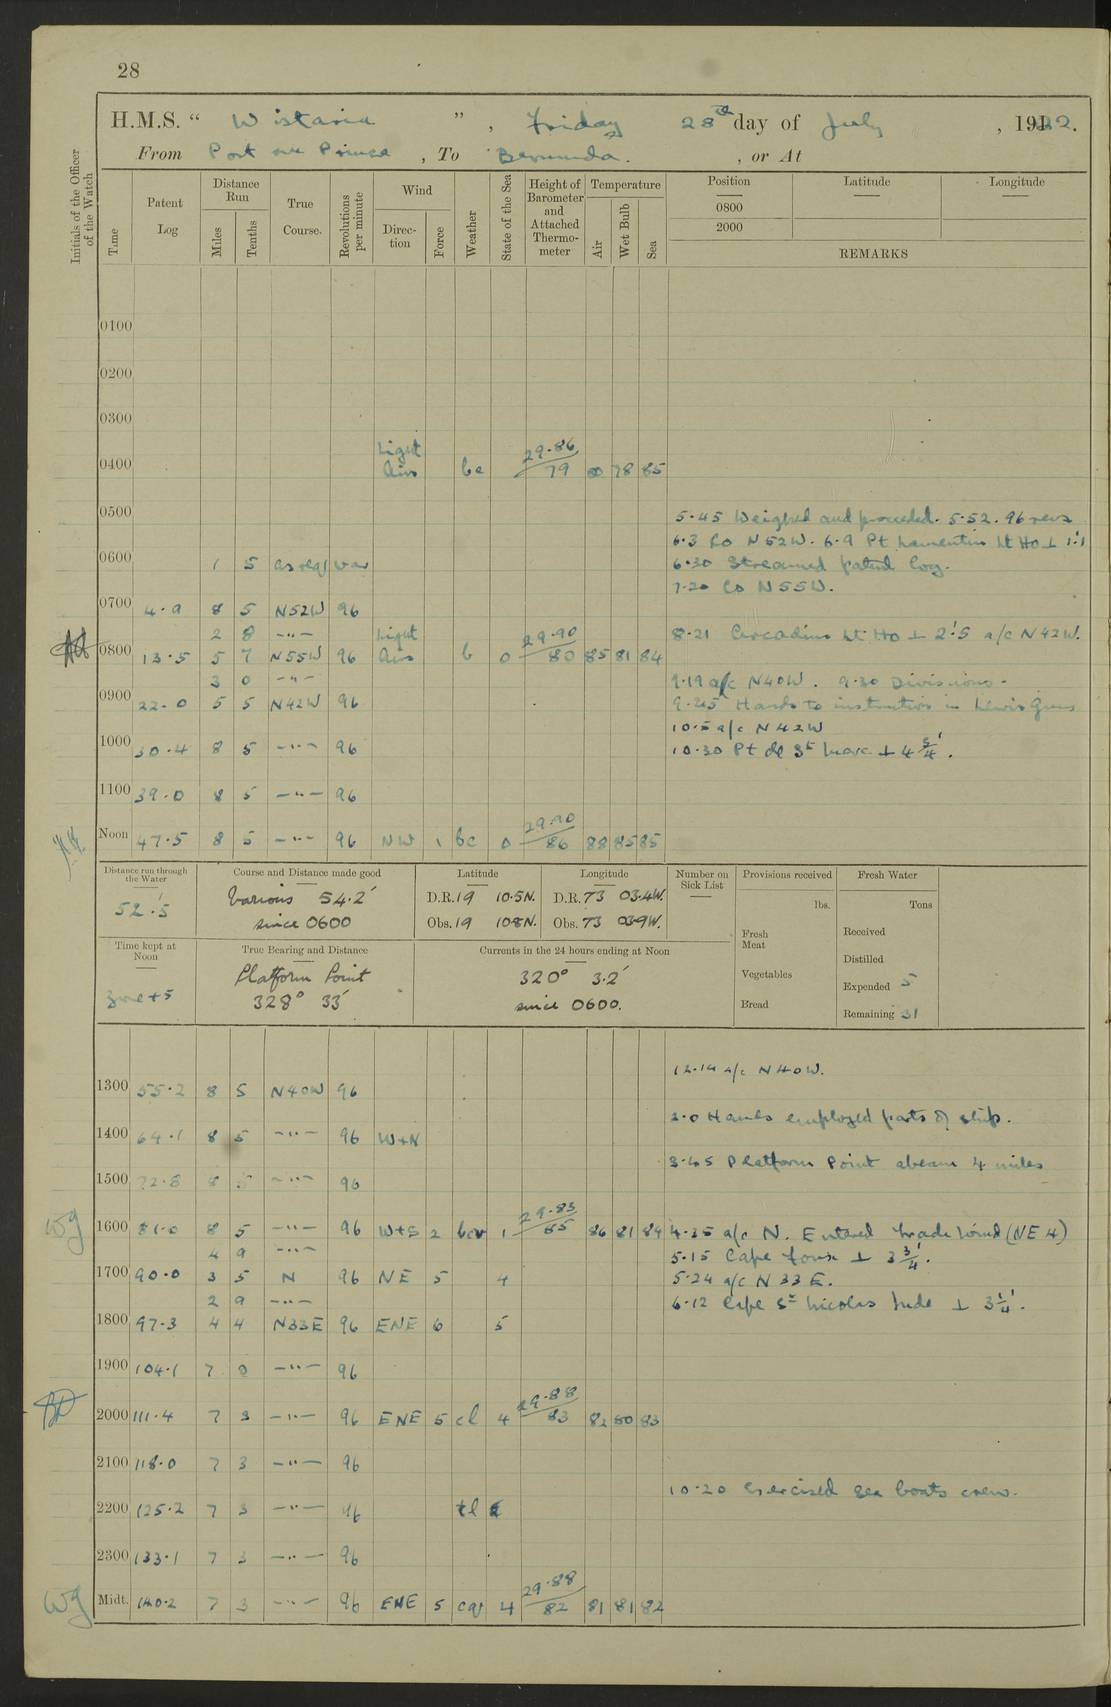 28
H.M.S. “ Wistaria ” , Friday 28th day of July , 1922.
From Port au Prince , To Bermuda. , or At
Initials of the Officer of the Watch
Time
Patent Log
Distance Run
Miles
Tenths
True Course.
Revolutions per minute
Wind
Direction
Force
Weather
State of the Sea
Height of Barometer and Attached Thermometer
Temperature
Air
Wet Bulb
Sea
Position
0800
2000
Latitude
Longitude
REMARKS
0100
0200
0300
0400 Light Airs bc 29.86 79 80 78 85
0500
5.45 Weighed and proceeded. 5.52. 96 revs
6.3 Co N52W. 6.9 Pt Lamentin Lt Ho ⊥ 1.'1
0600 1 5 as req var
6.30 Streamed patent log.
7.20 Co N55W.
0700 4.9 8 5 N52W 96
2 8 -"-
8.21 Lt Ho ⊥ 2.'5 a/c N42W.
0800 13.5 5 7 N55W 96 Light Airs b 0 29.90 80 85 81 84
3 0 -"-
9.19 a/c N40W. 9.30 Divisions.
0900 22.0 5 5 N42W 96
9.45 Hands to instruction in Lewis Guns
10.5 a/c N42W
1000 30.4 8 5 -"- 96
10.30 Pt de St Marc ⊥ 4 3/4'.
1100 39.0 8 5 -"- 96
Noon 47.5 8 5 -"- 96 NW 1 bc 0 29.90 86 88 85 85
Distance run through the Water
52.'5
Course and Distance made good
Various 54.2'
since 0600
Latitude
D.R. 19 10.5N.
Obs. 19 10.8N.
Longitude
D.R. 73 03.4W.
Obs. 73 03.9W.
Number on Sick List
Provisions received
lbs.
Fresh Meat
Vegetables
Bread
Fresh Water
Tons
Received
Distilled
Expended 5
Remaining 31
Time kept at Noon
Zone +5
True Bearing and Distance
Platform Point
328° 33'
Currents in the 24 hours ending at Noon
320° 3.2'
since 0600.
12.14 a/c N40W.
1300 55.2 8 5 N40W 96
2.0 Hands employed parts of ship.
1400 64.1 8 5 -"- 96 W+N
3.45 Platform Point abeam 4 miles
1500 72.8 8 5 -"- 96
1600 81.0 8 5 -"- 96 W+S 2 bcv 1 29.83 85 86 81 84
4.35 a/c N. Entered trade wind (NE 4)
4 9 -"-
5.15 Cape ⊥ 3 3/4'.
1700 90.0 3 5 N 96 NE 5 4
5.24 a/c N33E.
2 9 -"-
6.12 Cape St Nicolas Mole ⊥ 3 1/4'.
1800 97.3 4 4 N33E 96 ENE 6 5
1900 104.1 7 0 -"- 96
2000 111.4 7 3 -"- 96 ENE 5 cl 4 29.88 83 82 80 83
2100 118.0 7 3 -"- 96
10.20 Exercised sea boats crew.
2200 125.2 7 3 -"- 96
2300 133.1 7 3 -"- 96
Midt. 140.2 7 3 -"- 96 ENE 5 cq 4 29.88 82 81 81 82